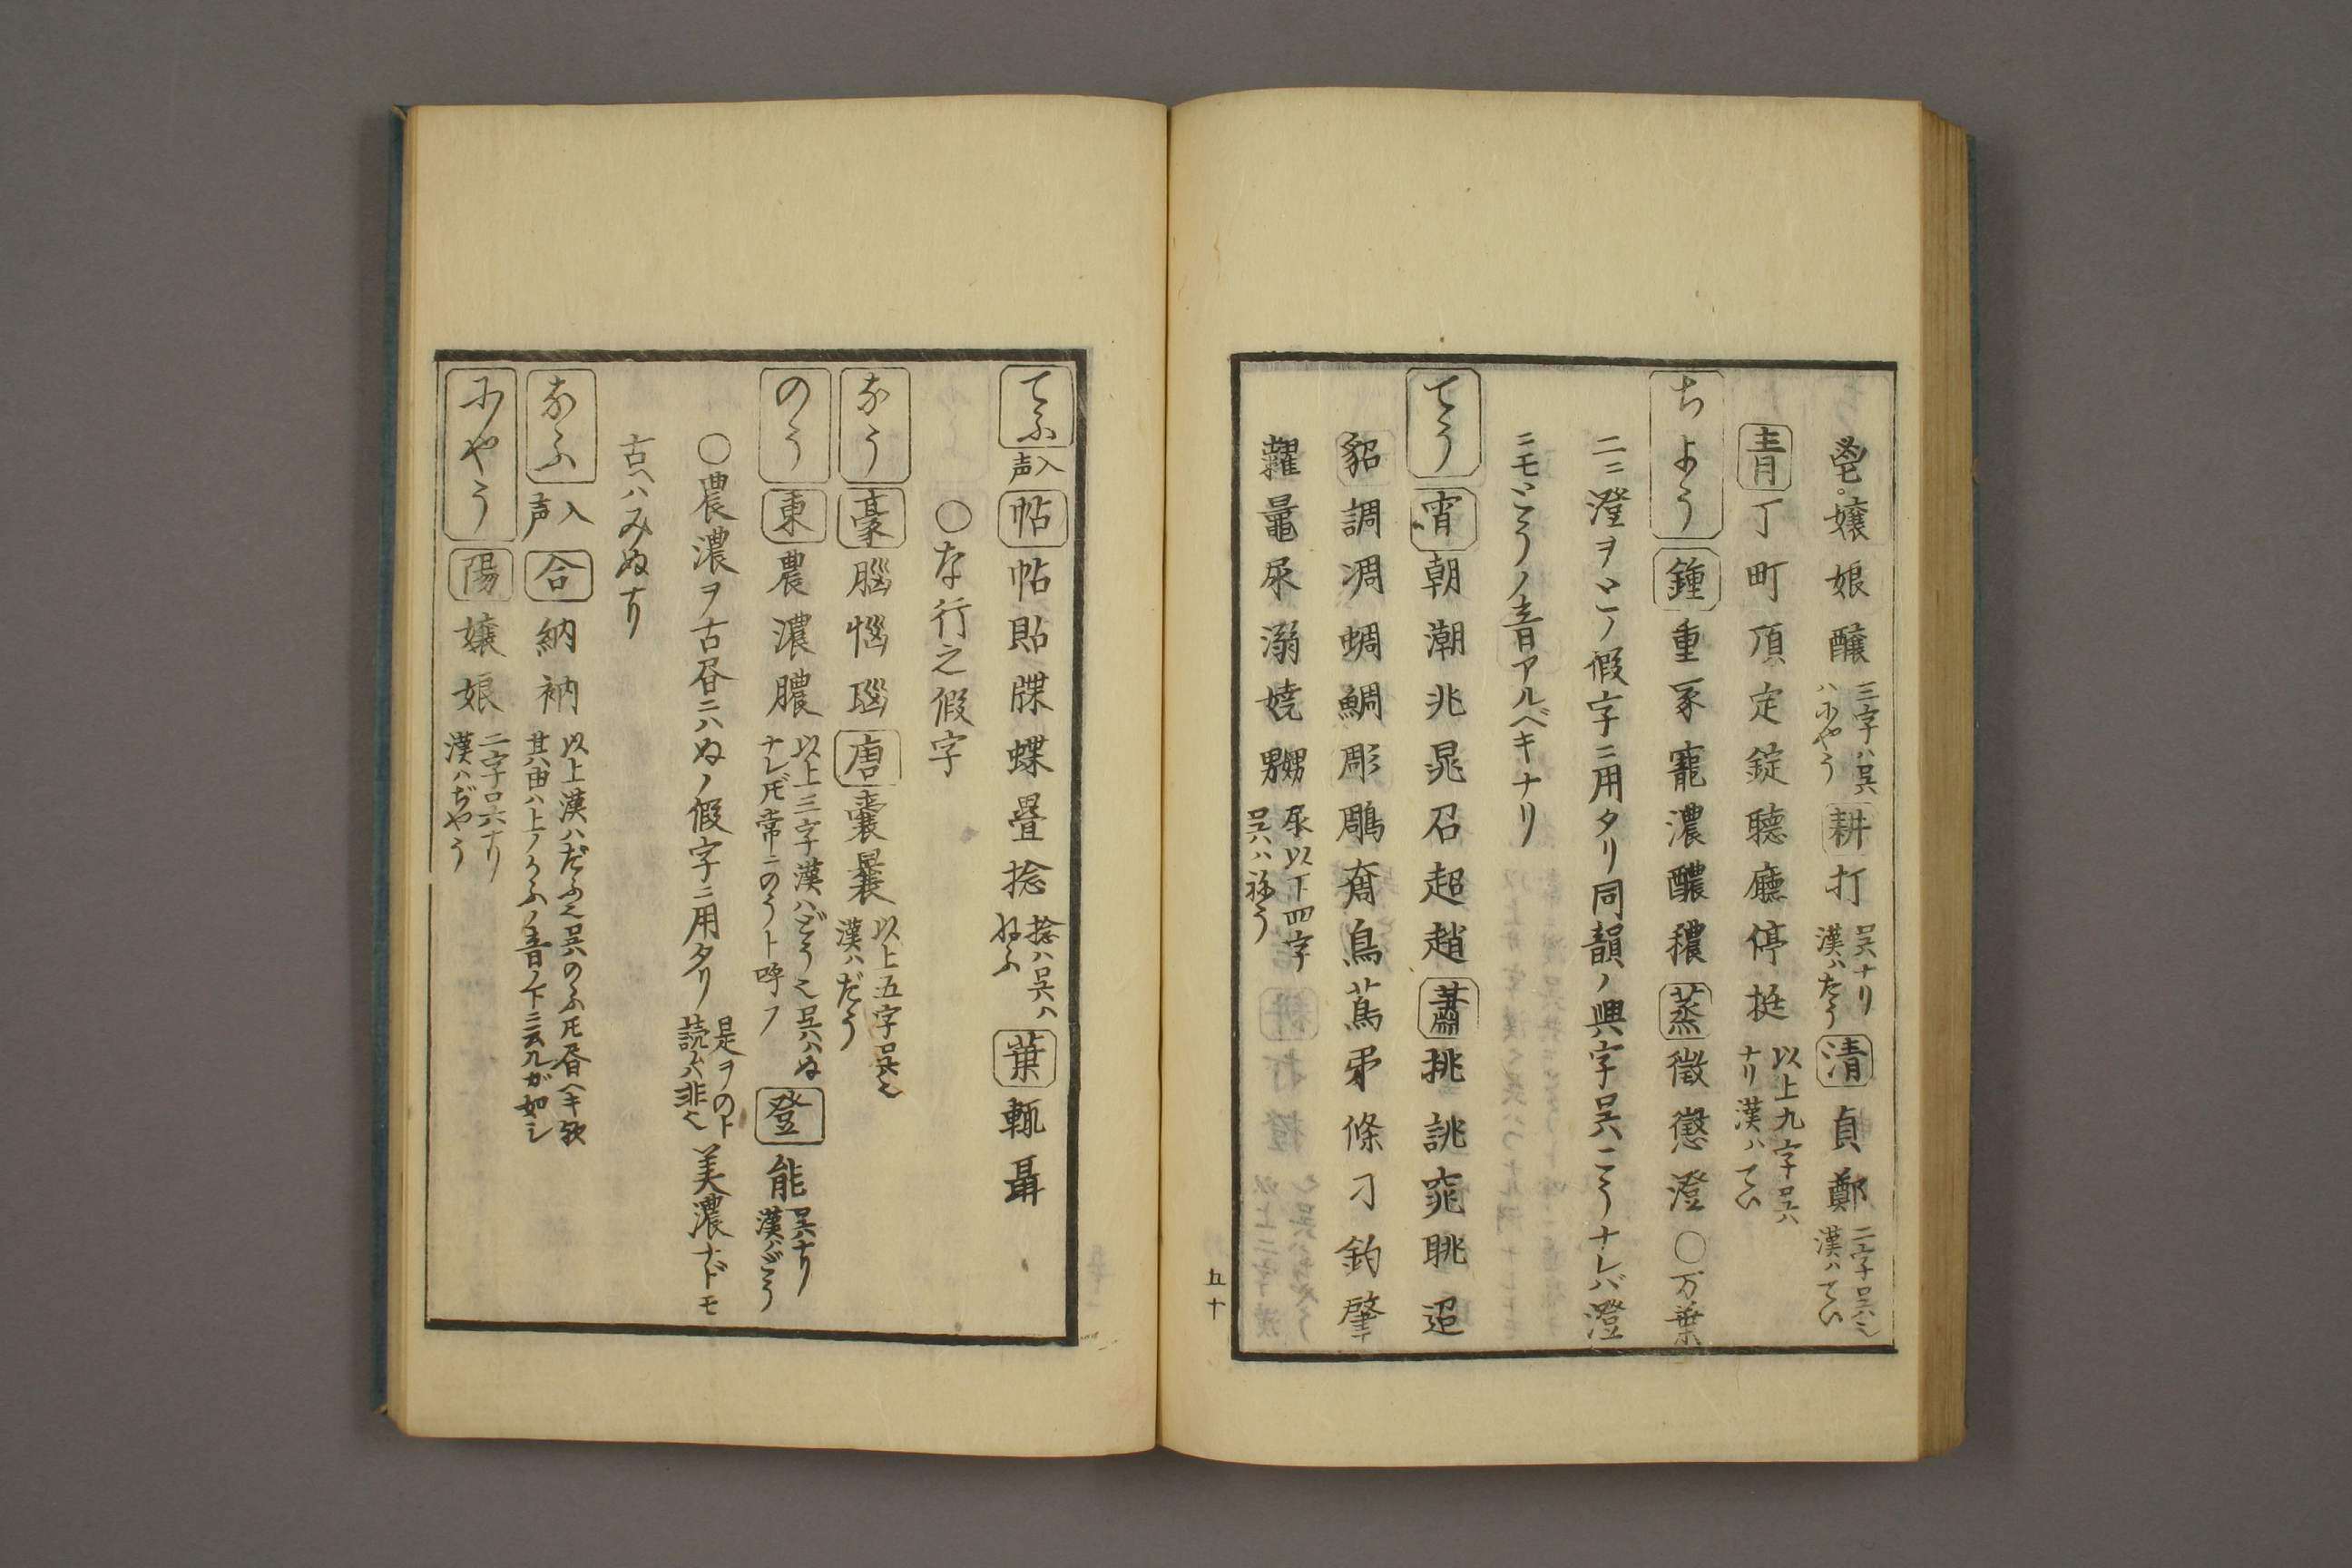 鬯嬢娘醸 三字ハ呉ハにやう 耕 打 呉ナリ漢ハたう 清 貞鄭 二字呉也漢ハてい
青 丁町頂定錠聴廳停挺 以上九字呉ナリ漢ハてい
ちよう 鍾 重冢寵濃醲穠 蒸 徴懲澄 〇万葉
二ニ澄ヲとノ假字ニ用タリ同韻ノ興字呉こうナレバ澄
ニモとうノ音アルベキナリ
てう 宵 朝潮兆晁召超趙 蕭 挑誂窕眺迢
貂調凋蜩鯛彫雕奝鳥蔦弔條刁釣肇
糶鼂尿溺嬈嬲 尿以下四字呉ハねう
五十
てふ 入声 帖 帖貼牒蝶畳捻 捻ハ呉ハねふ 葉 輒聶
〇な行之假字
なう 豪 腦惱瑙 唐 嚢曩 以上五字呉也漢ハだう
のう 東 農濃膿 以上三字漢ハどう也呉ハぬナレ𪜈常ニのうト呼フ 登 能 呉ナリ漢ハどう
〇農濃ヲ古昏ニハぬノ假字ニ用タリ 是ヲのト読ハ非也 美濃ナドモ
古ヘハみぬナリ
なふ 入声 合 納衲 以上漢ハだふ也呉のふ𪜈昏ヘキ歟其由ハ上ノうふノ音ノ下ニ云ルガ如シ
にやう 陽 嬢娘 二字呉ナリ漢ハぢやう